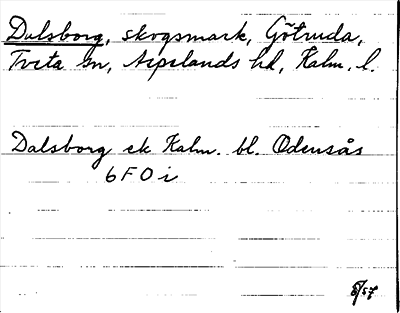 Dalsborg, skogsmark, Götruda,
Tveta sn, Aspelands hd, Kalm. l.
Dalsborg ek Kalm. bl. Odensås
6F0i
8/57